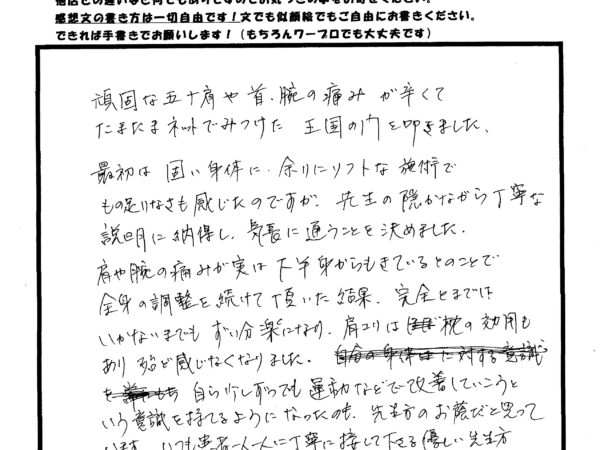 感想文の書き方は一切自由です！文でも似顔絵でもご自由にお書きください。
できれば手書きでお願いします！（もちろんワープロでも大丈夫です）
頑固な五十肩や首、腕の痛みが辛くて
たまたまネットでみつけた 王国の門を叩きました。
最初は固い身体に、余りにソフトな施術で
もの足りなさも感じたのですが、先生の穏かながら丁寧な
説明に納得し、気長に通うことを決めました。
肩や腕の痛みが実は下半身からもきているとのことで
全身の調整を続けて頂いた結果、完全とまでは
いかないまでもずい分楽になり、肩コリは 枕の効用も
あり殆ど感じなくなりました。自分の身体 に対する意識
を 自ら少しずつでも運動などで改善していこうと
いう意識を持てるようになったのも、先生方のお蔭だと思って
います。いつも患者一人一人に丁寧に接して下さる優しい先生方